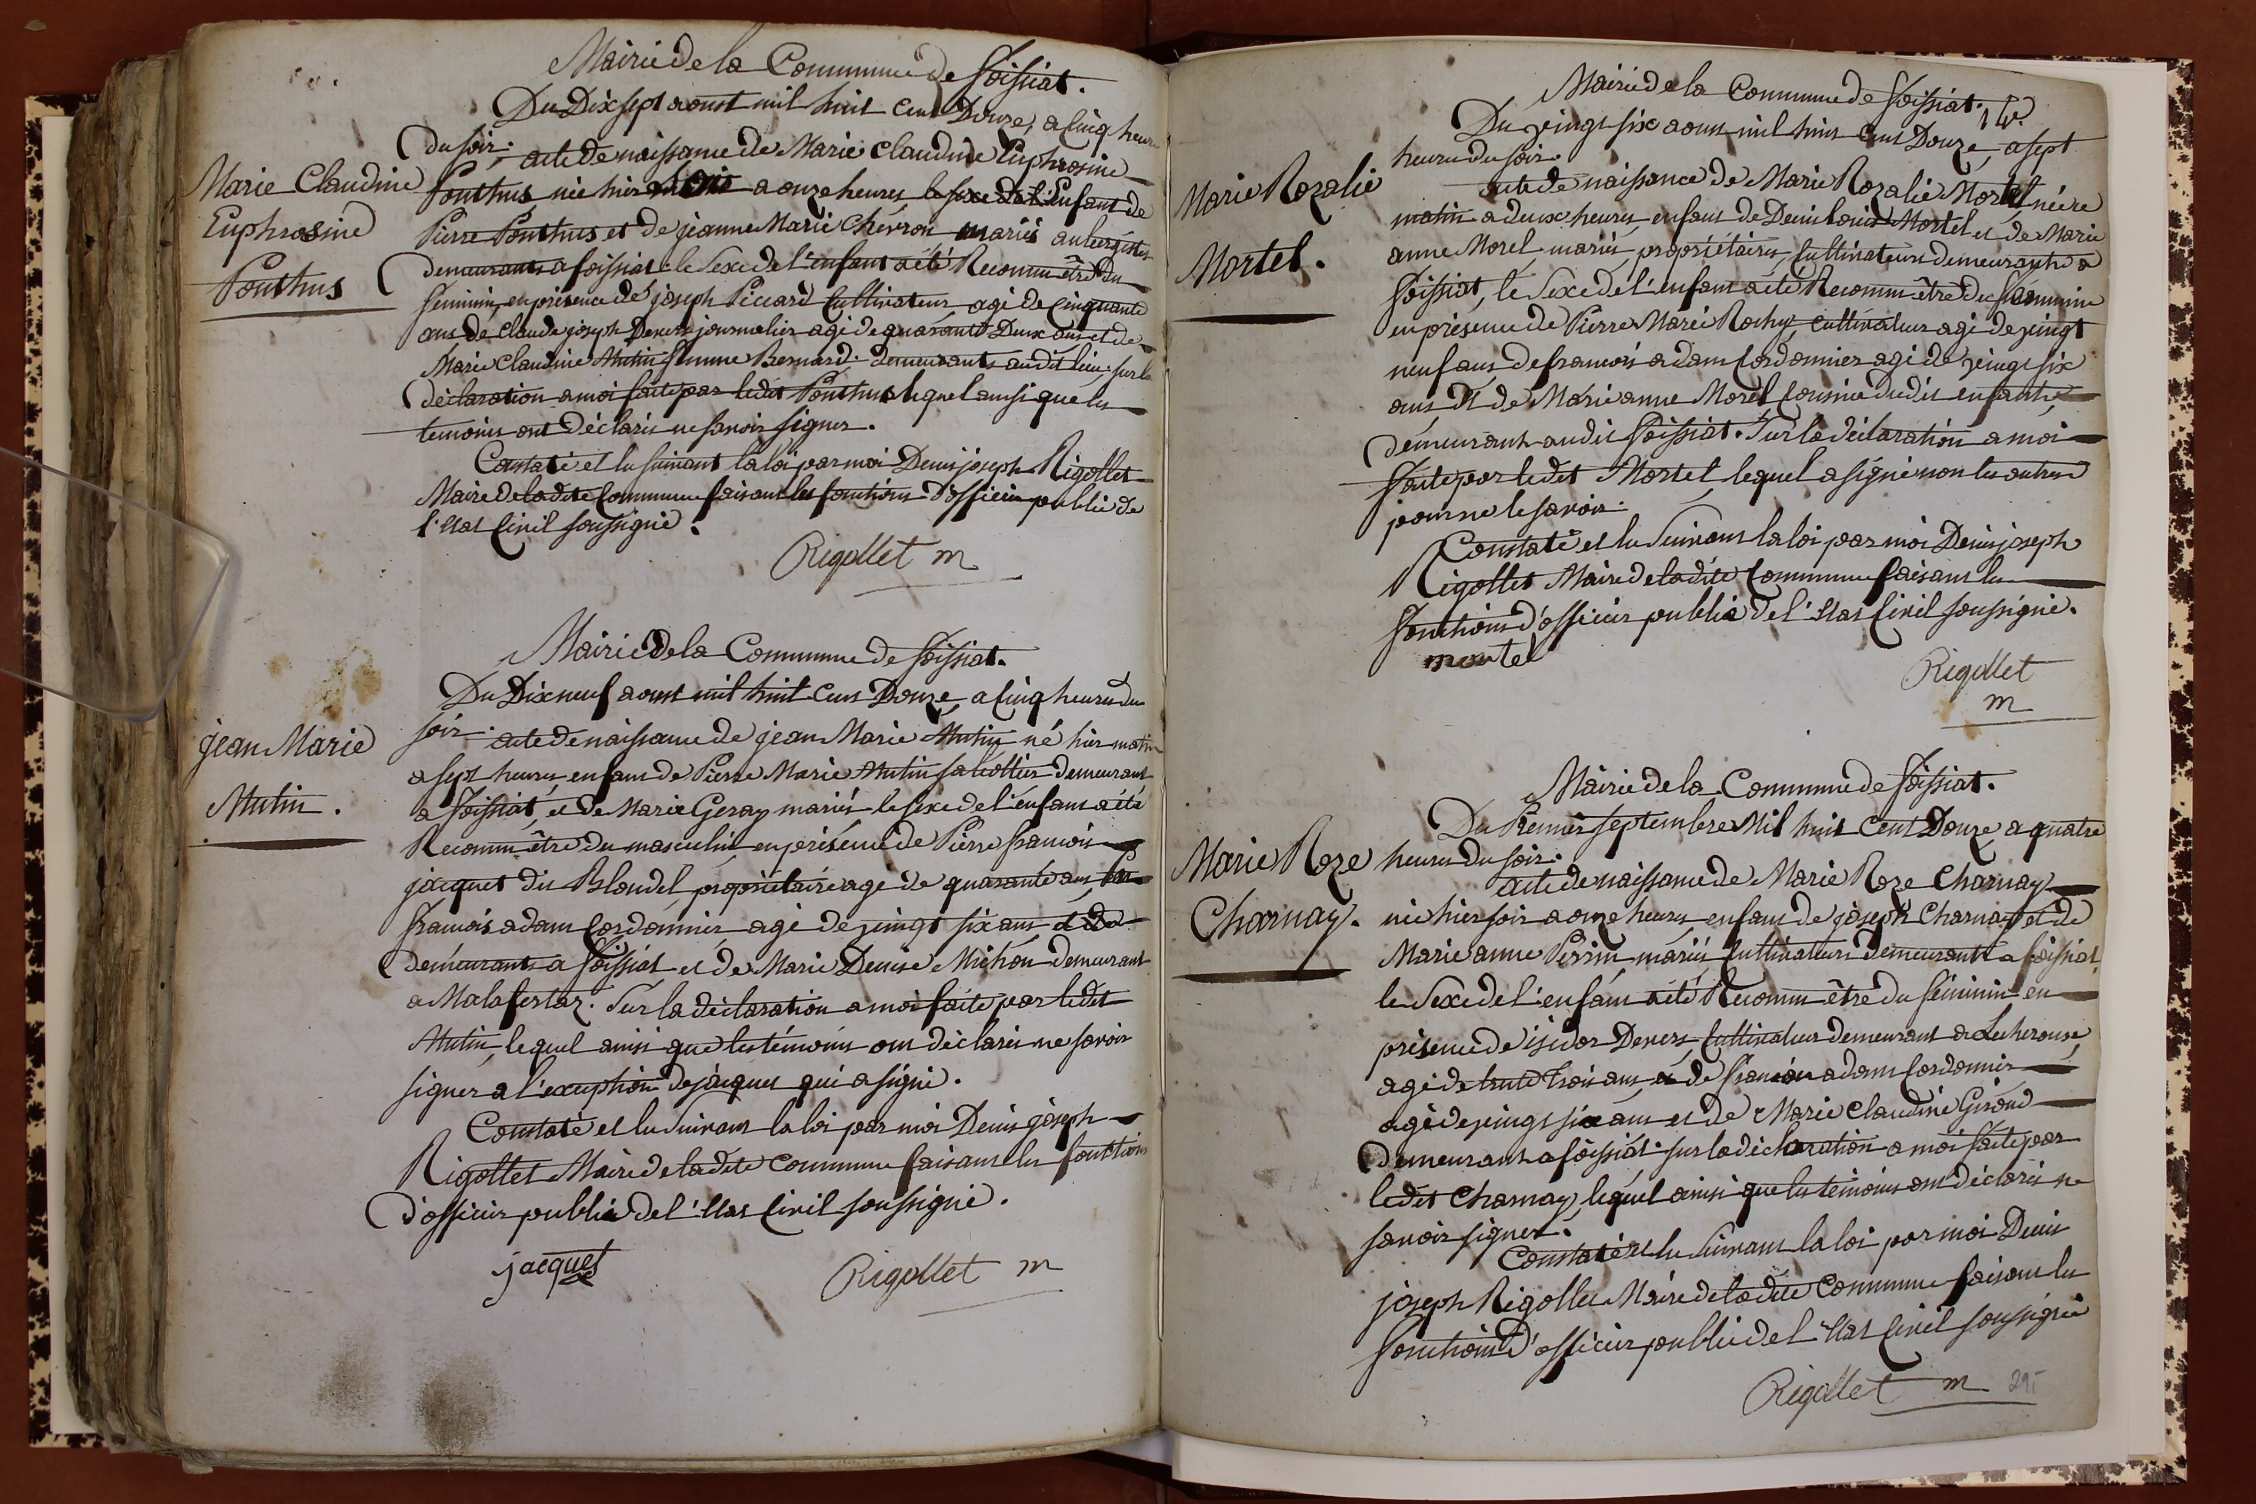 Mairie de la Commune de foissiat.
Du Dix sept aoust mil huit Cent Douze, a Cinq heures
du soir. acte de naissance de Marie Claudine Euphrosine
Marie Claudine
Euphrosine
Ponthus
Ponthus née hier a onze heures, le sexe de l'Enfant de
Pierre Ponthus et de jeanne Marie Chevron mariés aubergistes
demeurants a foissiat le Sexe de l'enfant a été Reconnu être du
féminin, en présence de joseph Piccard Cultivateur agé de Cinquante
ans de Claude joseph Devers journalier agé de quarante Deux ans et de
Marie Claudine Mutin femme Bernard. demeurants audit lieu sur la
déclaration a moi faite par ledit Ponthus lequel ainsi que les
temoins ont déclarés ne savoir signer.
Constaté et lu suivant la loi par moi Denis joseph Rigollet
Maire de ladite Commune faisant les fonctions d'officier public de
l'Etat Civil soussigné.
Rigollet m
Mairie de la Commune de foissiat.
Du Dix neuf aoust mil huit Cent Douze, a Cinq heures du
soir. acte de naissance de jean Marie Mutin né hier matin
jean Marie
Mutin.
a sept heures, enfant de Pierre Marie Mutin sabottier demeurant
a foissiat, et de Marie Geray mariés le sexe de l'enfant a été
Reconnu être du masculin en présence de Pierre francois
jacquet dit Blondel, propriétaire age de quarante ans, de
francois adam Cordonnier agé de vingt six ans et de
demeurants a foissiat et de Marie Denise Michon demeurant
a Malafretaz. Sur la déclaration a moi faite par ledit
Mutin, lequel ainsi que les témoins ont déclarés ne savoir
signer a l'exception de jacques qui a signé.
Constaté et lu suivant la loi par moi Denis joseph
Rigollet Maire de ladite Commune faisant les fonctions
d'officier public de l'Etat Civil soussigné.
jacquet Rigollet m
Mairie de la Commune de foissiat.
Du vingt six aoust mil huit Cent Douze, a sept
heures du soir.
acte de naissance de Marie Rozalie Mortel née ce
Marie Rozalie
Mortel.
matin a deux heures, enfant de Denis louis Mortel et de Marie
anne Morel mariés, propriétaires, Cultivateurs demeurants a
foissiat, le Sexe de l'enfant a été Reconnu être du féminin
en présence de Pierre Marie Rochy, cultivateur agé de vingt
neuf ans, de francois adam Cordonnier agé de vingt six
ans, et de Marie anne Morel Cousine dudit enfant
demeurant audit foissiat. Sur la déclaration a moi
faite par ledit Mortel, lequel a signé non les autres
pour ne le savoir.
Constaté et lu Suivant la loi par moi Denis joseph
Rigollet Maire de ladite Commune faisant les
fonctions d'officier public de l'Etat Civil soussigné.
mortel Rigollet
m
Mairie de la Commune de foissiat.
Du Premier septembre Mil huit Cent Douze a quatre
heures du soir.
Marie Roze
Charnay.
acte de naissance de Marie Roze Charnay
née hier soir a onze heures, enfant de joseph Charnay et de
Marie anne Perrin, mariés, Cultivateurs demeurants a foissiat,
le Sexe de l'enfant a été Reconnu être du féminin en
présence de isidor Devers, Cultivateur demeurant a Lecherouse,
agé de trente trois ans, et de francois adam Cordonnier
agé de vingt six ans et de Marie Claudine Giroud
demeurant a foissiat. sur la déclaration a moi faite par
ledit Charnay, lequel ainsi que les temoins ont déclarés ne
savoir signer.
Constaté et lu Suivant la loi par moi Denis
joseph Rigollet Maire de ladite Commune faisant les
fonctions d'officier public de l'Etat Civil soussigné
Rigollet m 295